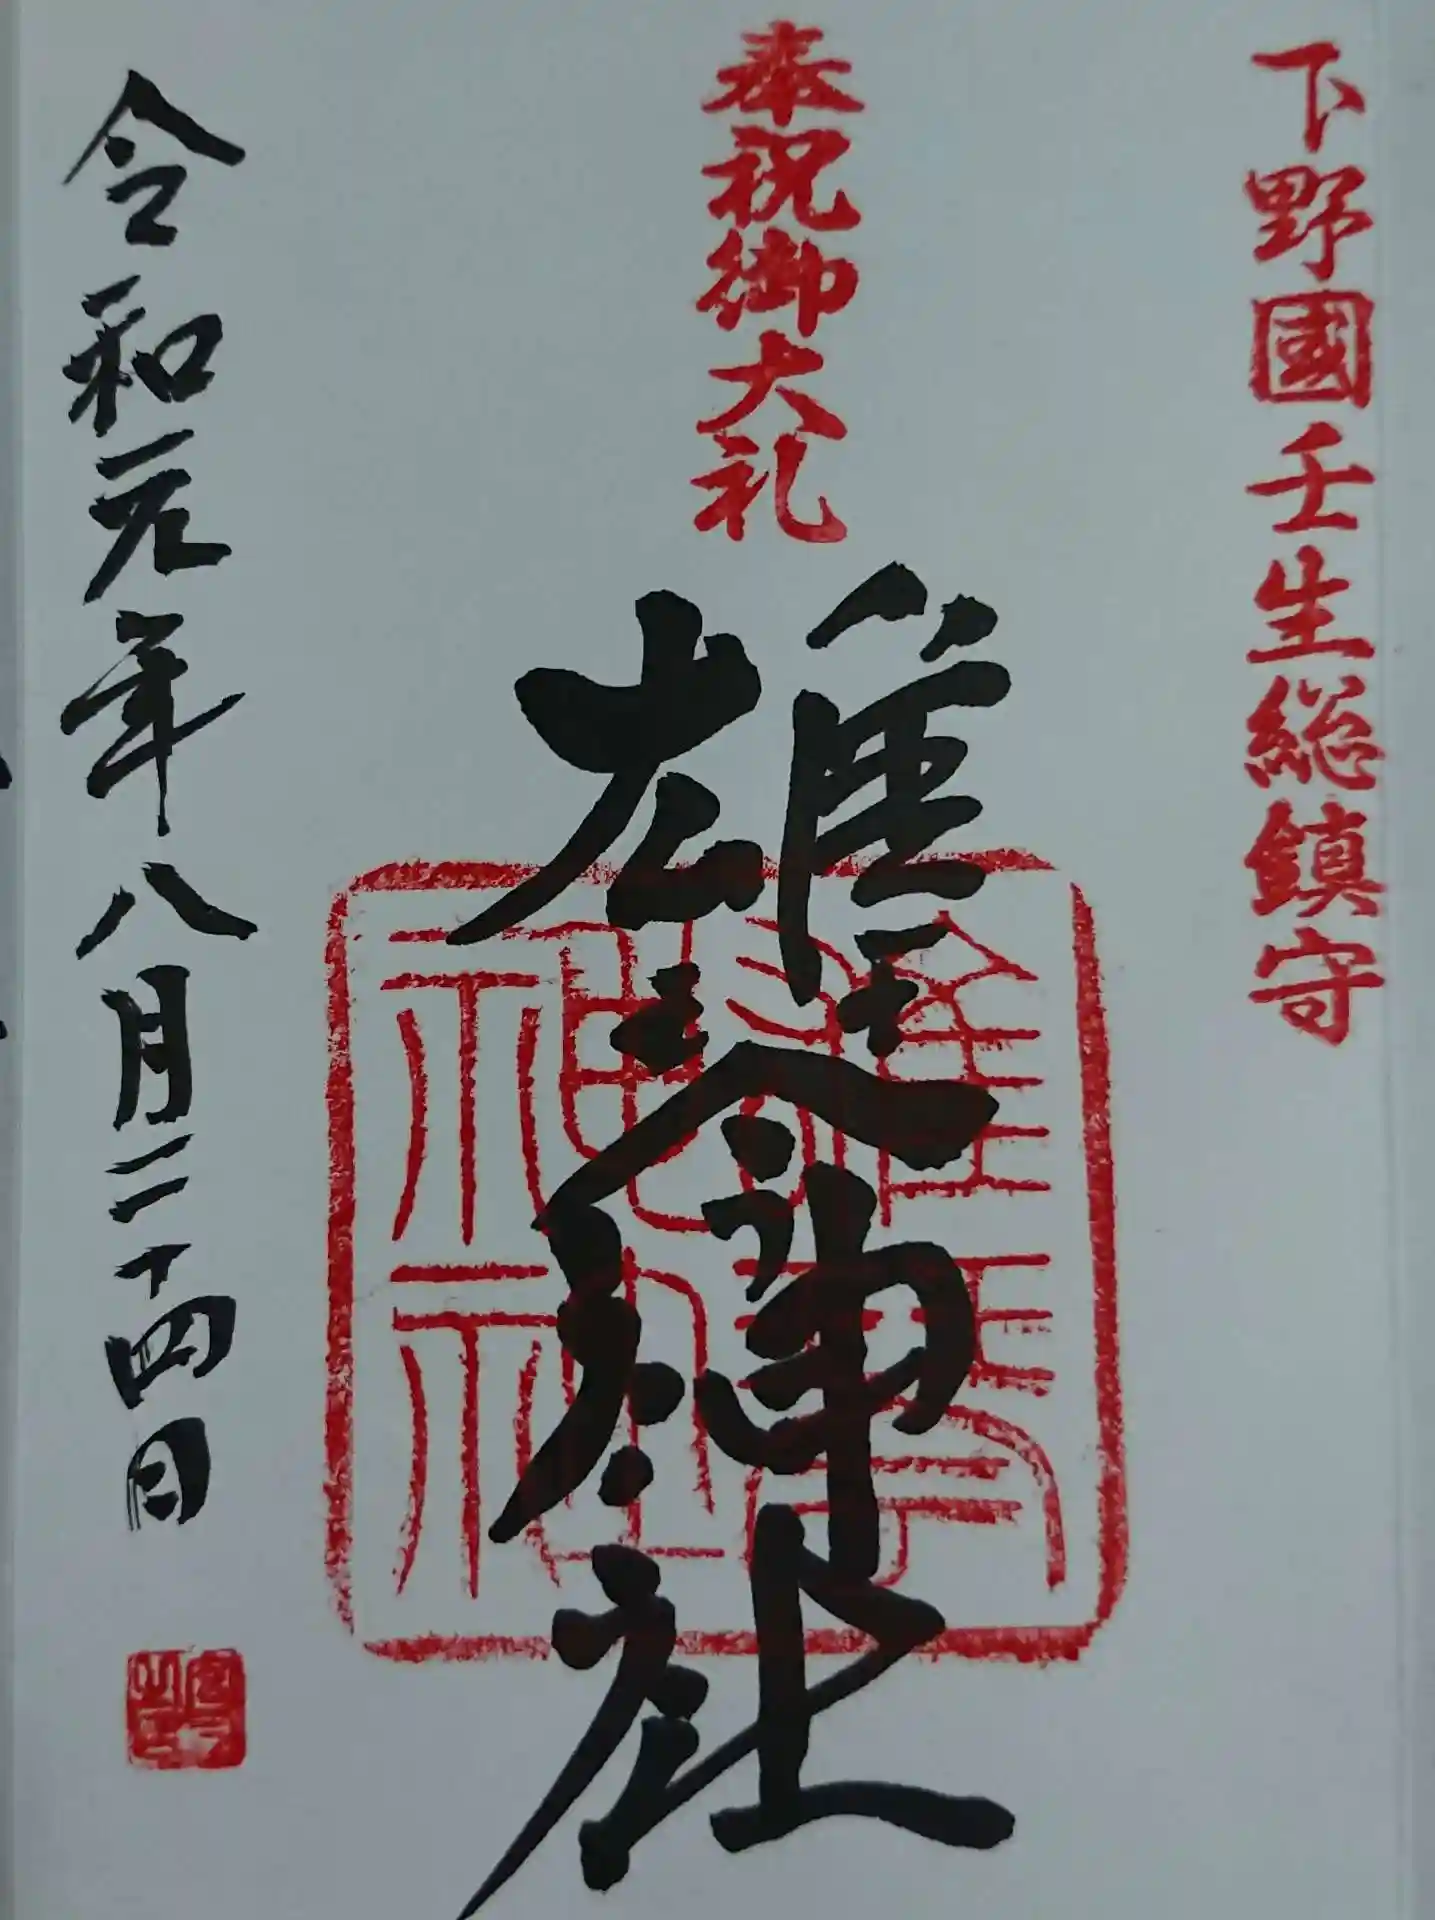 下野國壬生総鎮守
奉祝御大礼
雄琴神社
令和元年八月二十四日